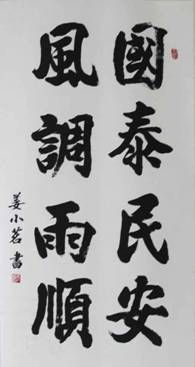 國泰民安
風調雨順
姜小茗書